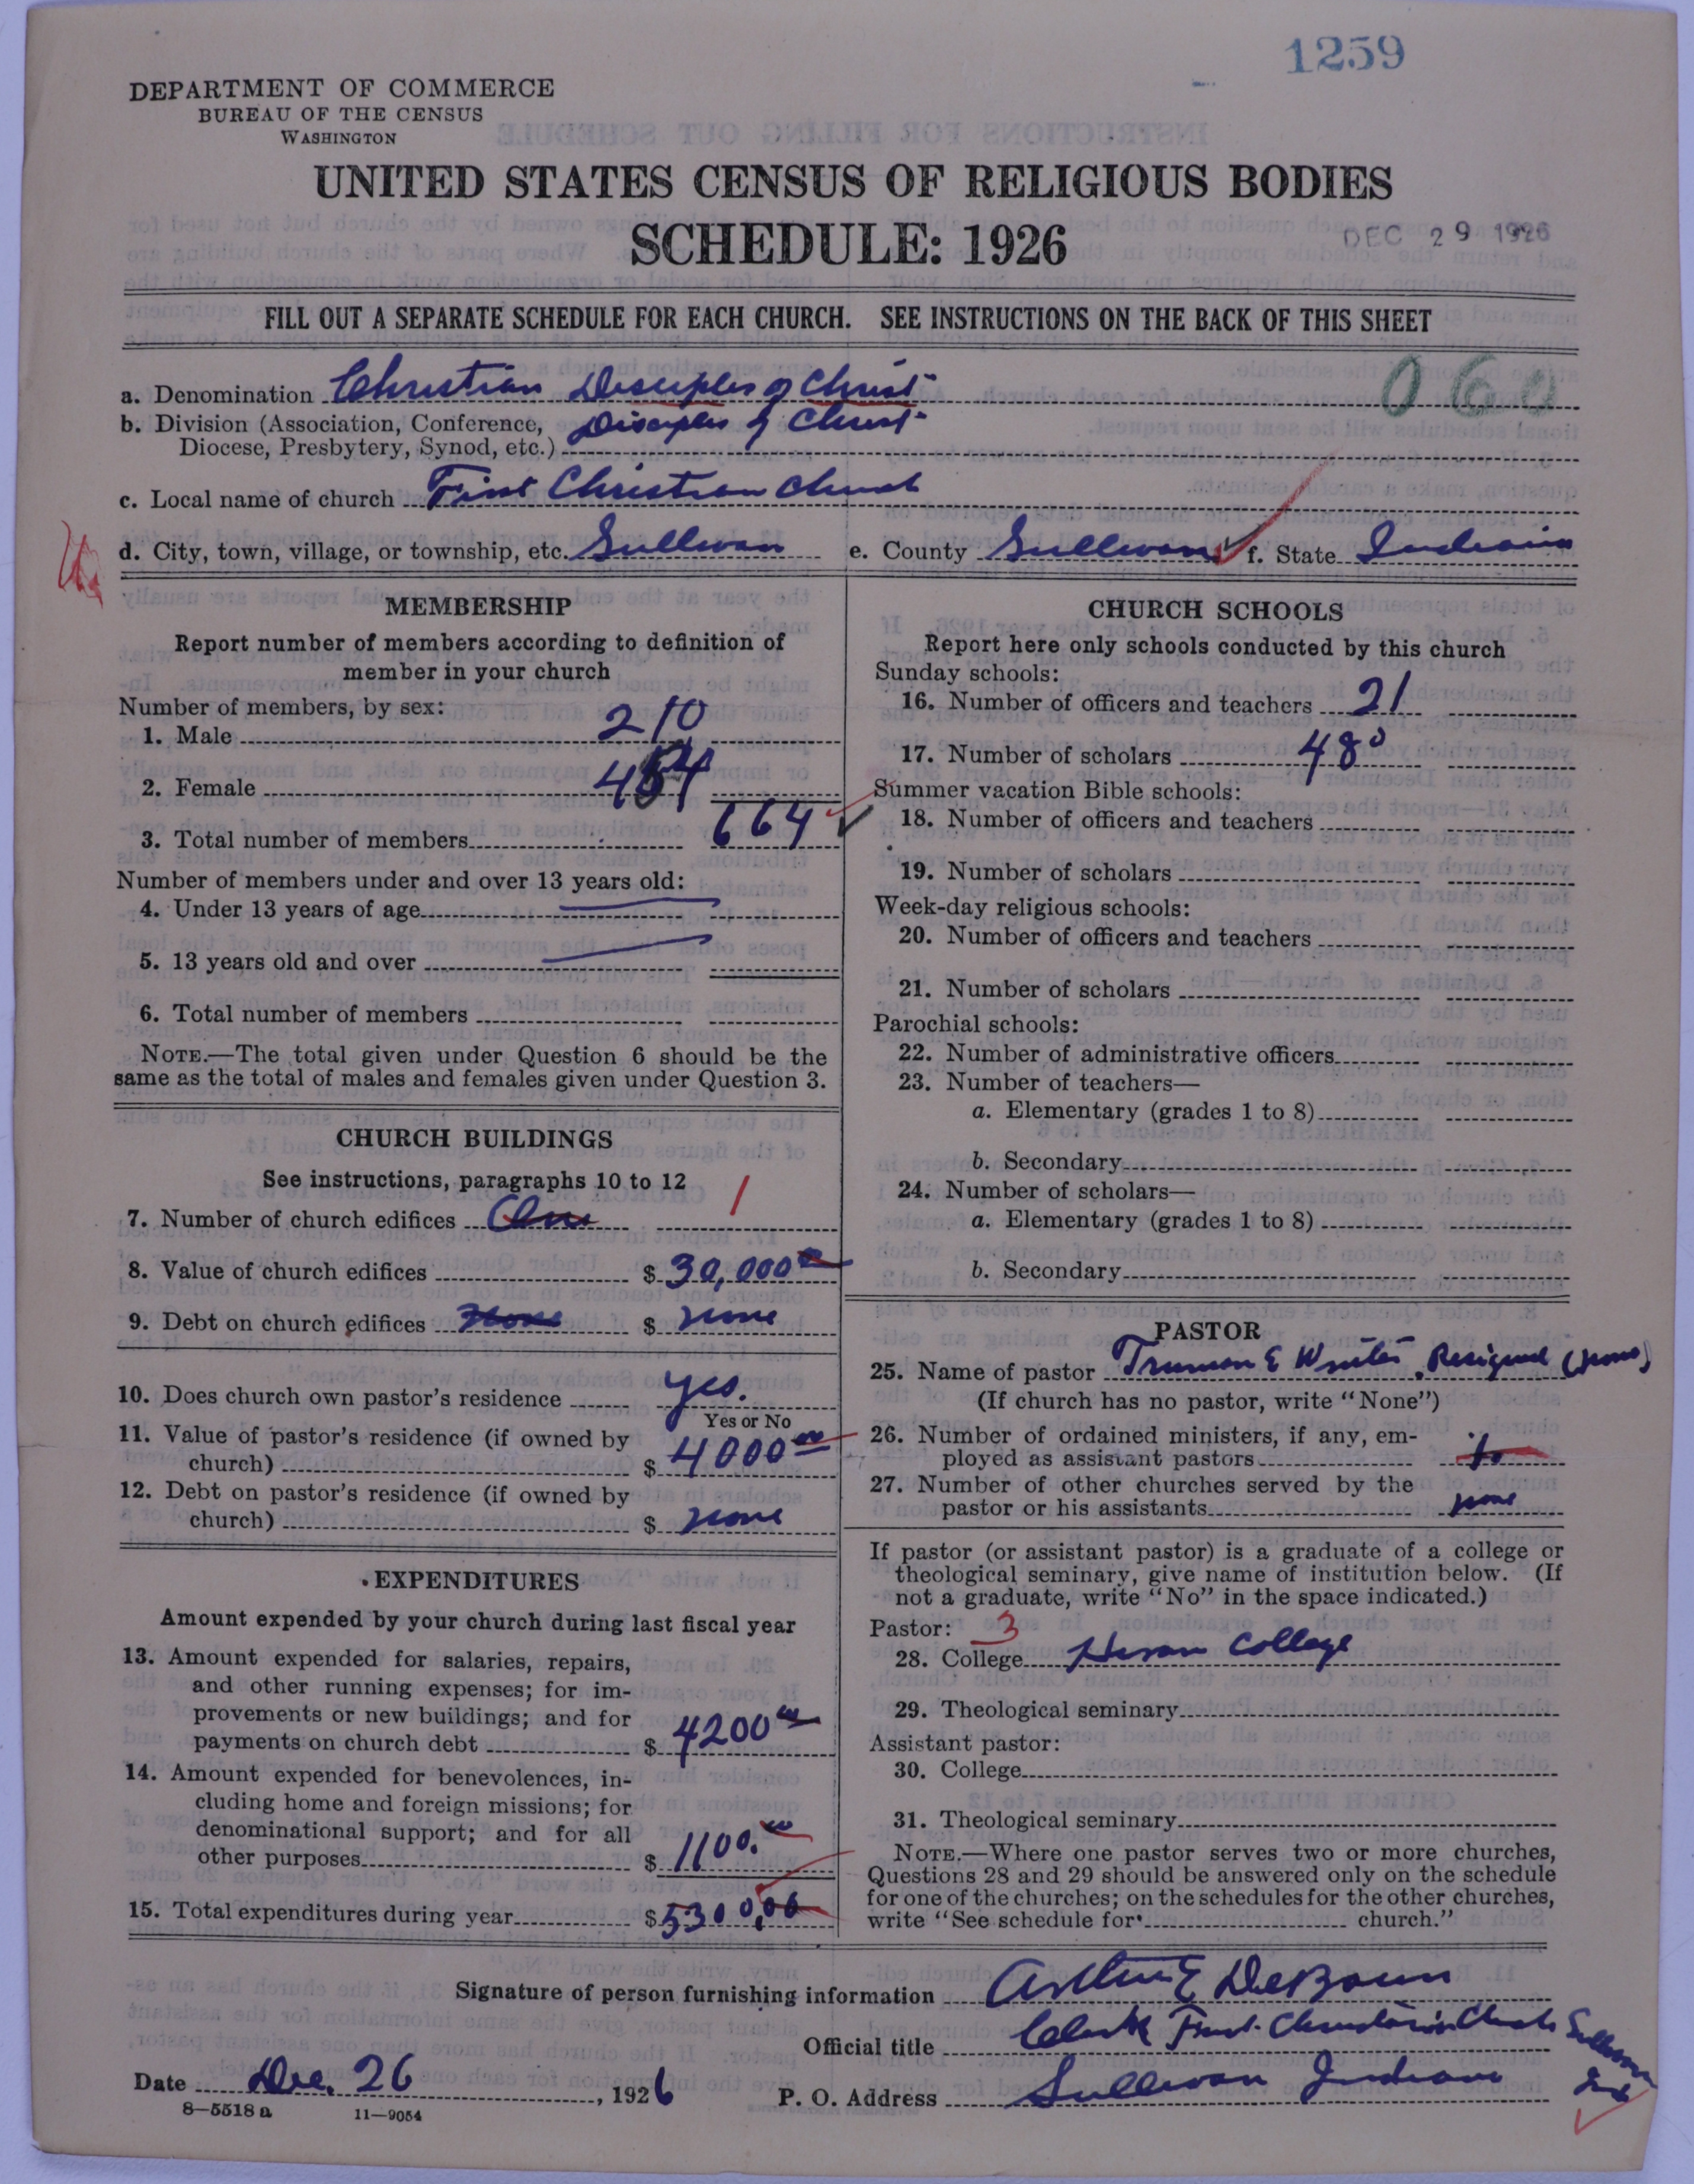 1259
DEPARTMENT OF COMMERCE
BUREAU OF THE CENSUS
WASHINGTON
UNITED STATES CENSUS OF RELIGIOUS BODIES
SCHEDULE: 1926
DEC 29 1926
FILL OUT A SEPARATE SCHEDULE FOR EACH CHURCH. SEE INSTRUCTIONS ON THE BACK OF THIS SHEET
a. Denomination Christian Disciples of Christ 060
b. Division (Association, Conference, Disciples of Christ
Diocese, Presbytery, Synod, etc.)
c. Local name of church First Christian Church
d. City, town, village, or township, etc. Sullivan e. County Sullivan f. State Indiana
MEMBERSHIP
Report number of members according to definition of
member in your church
Number of members, by sex:
1. Male 210
2. Female 454
3. Total number of members 664
Number of members under and over 13 years old:
4. Under 13 years of age
5. 13 years old and over
6. Total number of members
NOTE.—The total given under Question 6 should be the
same as the total of males and females given under Question 3.
CHURCH BUILDINGS
See instructions, paragraphs 10 to 12
7. Number of church edifices One 1
8. Value of church edifices $ 30,000 00
9. Debt on church edifices None $ none
10. Does church own pastor's residence yes.
Yes or No
11. Value of pastor's residence (if owned by
church) $ 4000 00
12. Debt on pastor's residence (if owned by
church) $ none
EXPENDITURES
Amount expended by your church during last fiscal year
13. Amount expended for salaries, repairs,
and other running expenses; for im-
provements or new buildings; and for
payments on church debt $ 4200 00
14. Amount expended for benevolences, in-
cluding home and foreign missions; for
denominational support; and for all
other purposes $ 1100. 00
15. Total expenditures during year $ 5300,00
CHURCH SCHOOLS
Report here only schools conducted by this church
Sunday schools:
16. Number of officers and teachers 21
17. Number of scholars 480
Summer vacation Bible schools:
18. Number of officers and teachers
19. Number of scholars
Week-day religious schools:
20. Number of officers and teachers
21. Number of scholars
Parochial schools:
22. Number of administrative officers
23. Number of teachers—
a. Elementary (grades 1 to 8)
b. Secondary
24. Number of scholars—
a. Elementary (grades 1 to 8)
b. Secondary
PASTOR
25. Name of pastor Truman E Resigned (none)
(If church has no pastor, write "None")
26. Number of ordained ministers, if any, em-
ployed as assistant pastors
27. Number of other churches served by the
pastor or his assistants none
If pastor (or assistant pastor) is a graduate of a college or
theological seminary, give name of institution below. (If
not a graduate, write "No" in the space indicated.)
Pastor: 3
28. College College
29. Theological seminary
Assistant pastor:
30. College
31. Theological seminary
NOTE.—Where one pastor serves two or more churches,
Questions 28 and 29 should be answered only on the schedule
for one of the churches; on the schedules for the other churches,
write "See schedule for church."
Signature of person furnishing information Arthur E DeBaun
Official title Clerk First Christian Church Sullivan Ind
Date Dec. 26, 1926 P. O. Address Sullivan Indiana
8—5518 a 11—9054